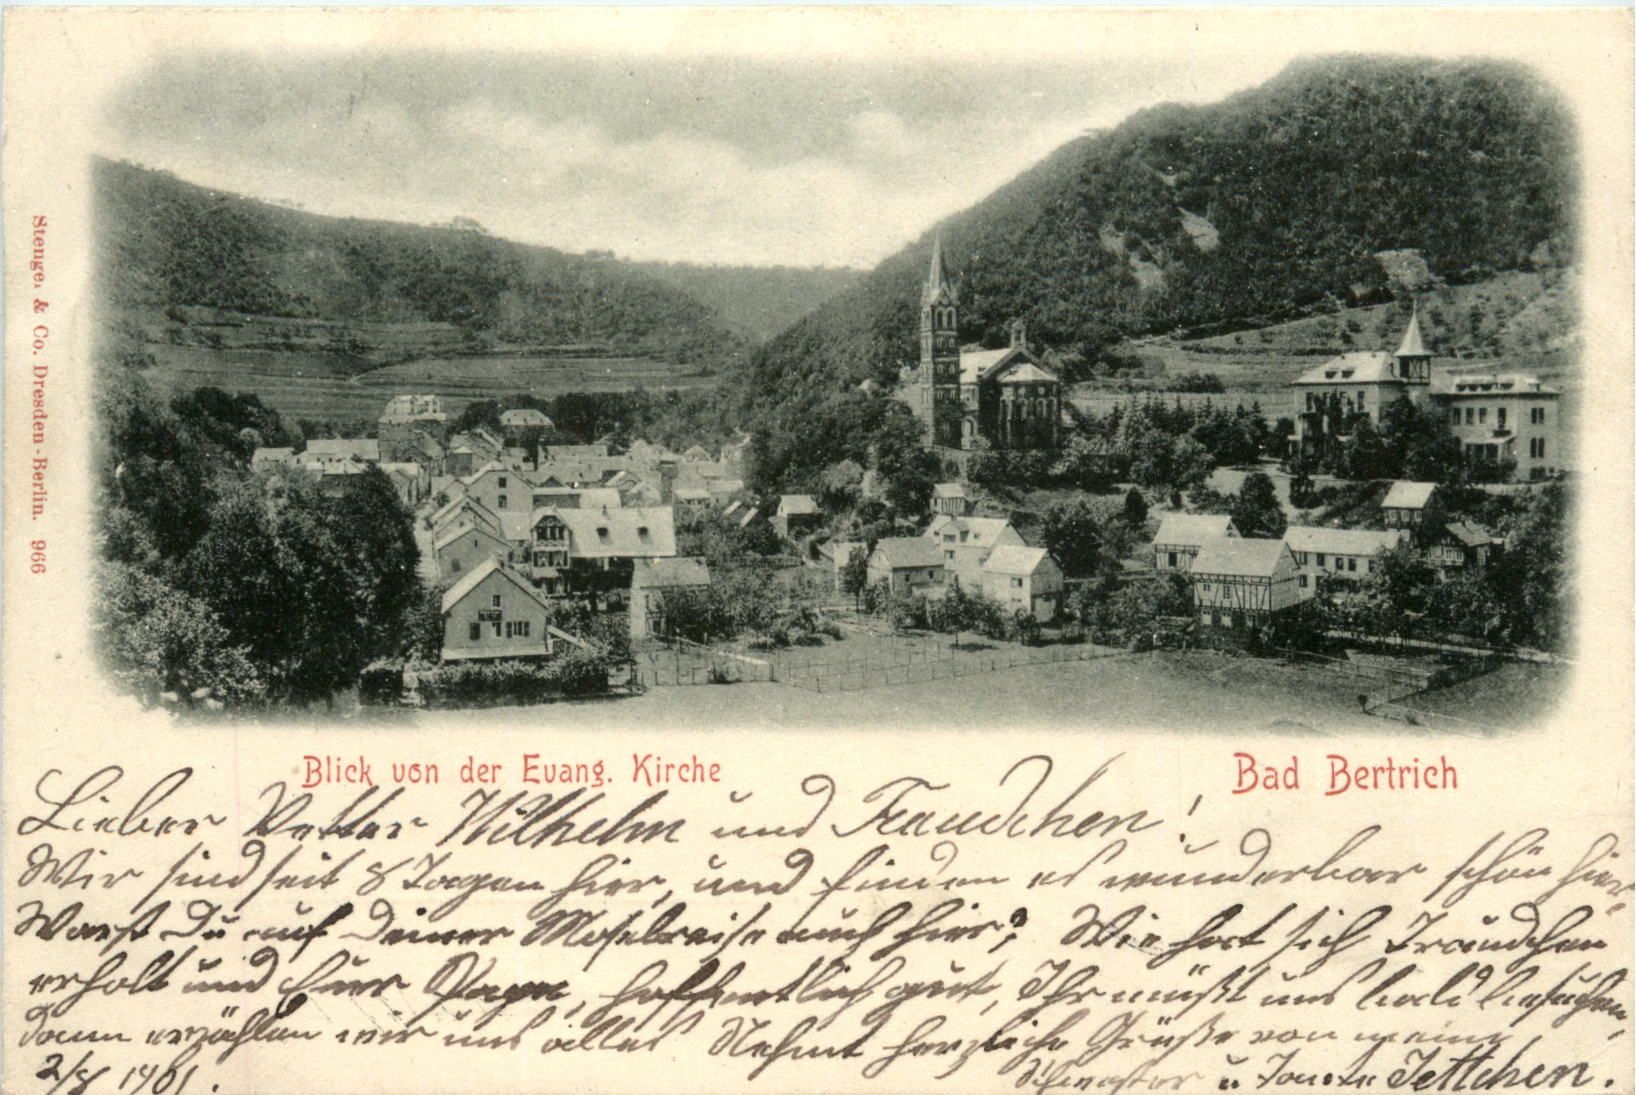 Stengel & Co. Dresden-Berlin. 966
Blick von der Evang. Kirche
Bad Bertrich
Lieber Vetter Wilhelm und Traudchen!
Wir sind seit 8 Tagen hier, und finden es wunderbar schön hier.
Warst Du auf Deiner Moselreise auch hier? Wie hat sich Traudchen
erholt und Euer Papa, hoffentlich gut, Ihr müßt uns bald besuchen,
dann erzählen wir uns alles Nehmt herzliche Grüße von meine
2/8 1901.
Schwester u Tante Jettchen.